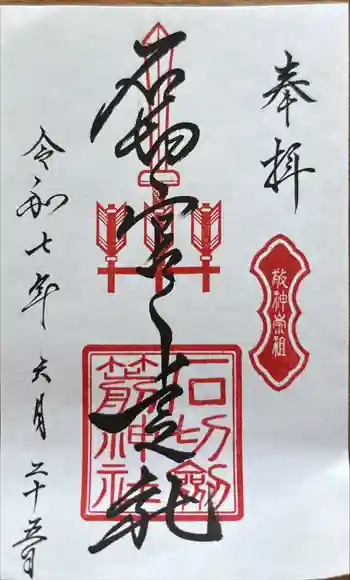 奉拝
敬神崇祖
石切宮
石切劔
箭神社
令和七年 六月 二十五日